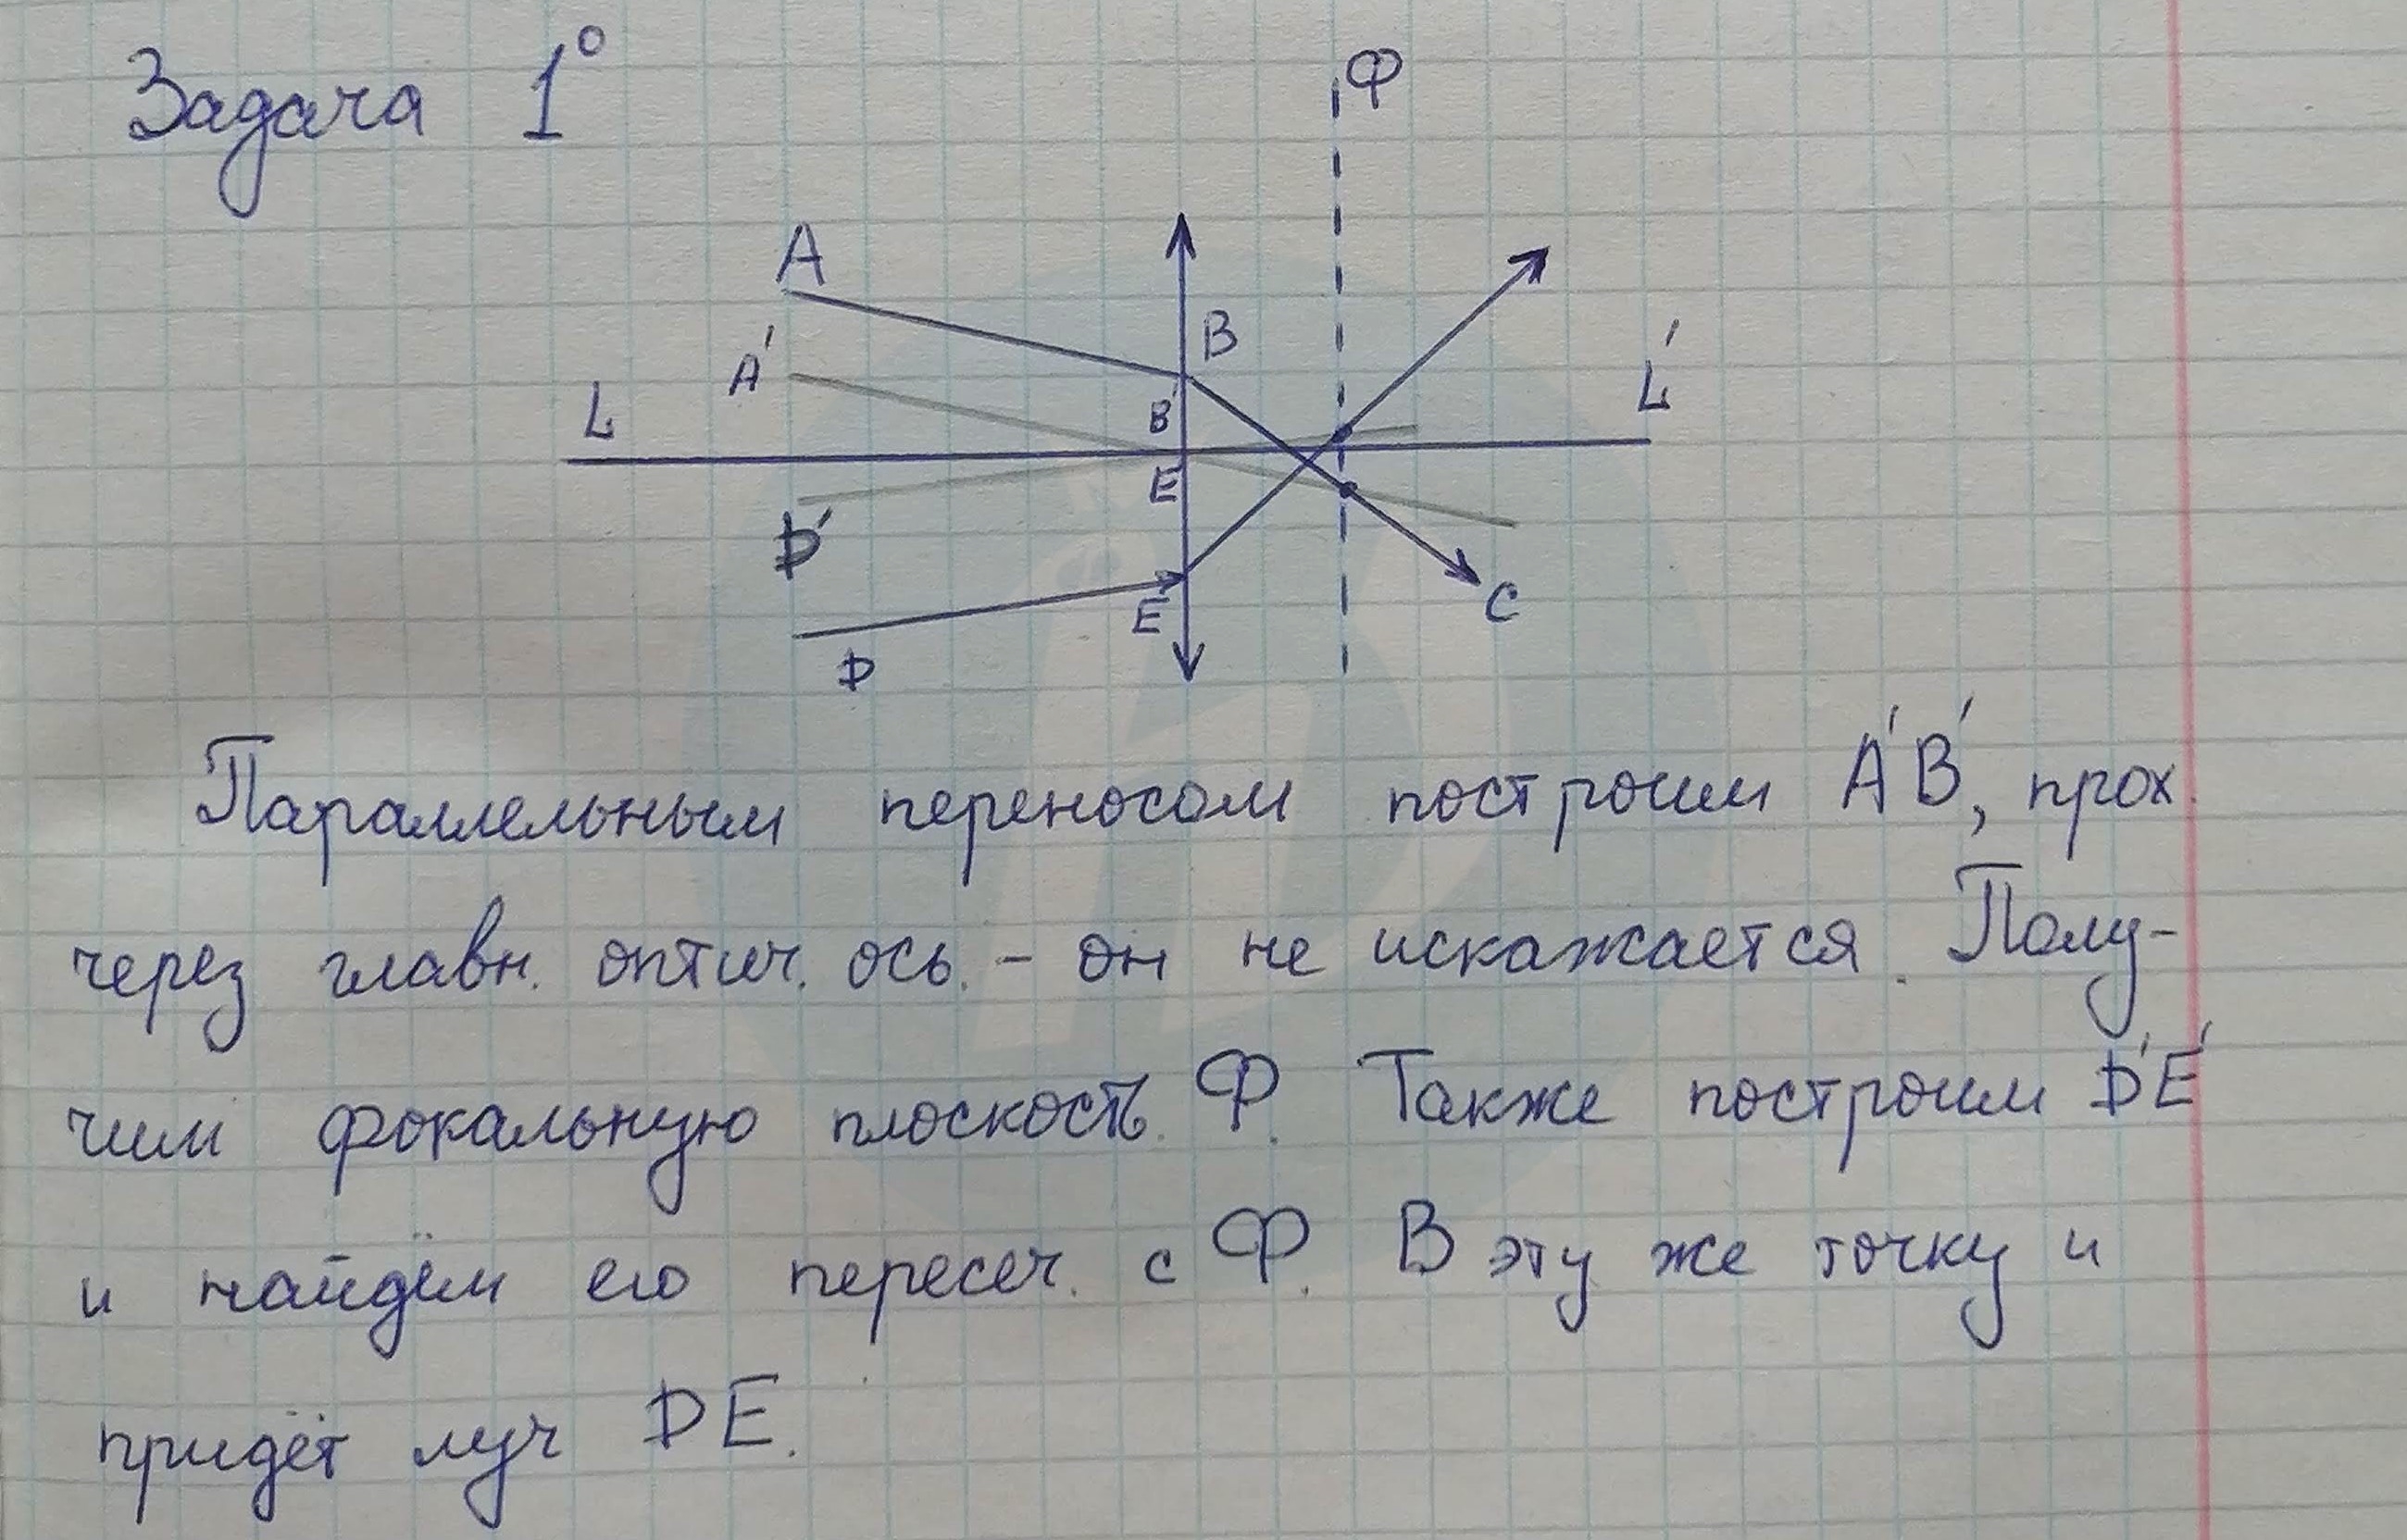 Задача 1°
Ф
A
A'
B
L
B'
L'
E
D'
E
C
D
Параллельным переносом построим A'B', прох.
через главн. оптич. ось. – он не искажается. Полу-
чим фокальную плоскость Ф. Также построим D'E'
и найдём его пересеч. с Ф. В эту же точку и
придёт луч DE.